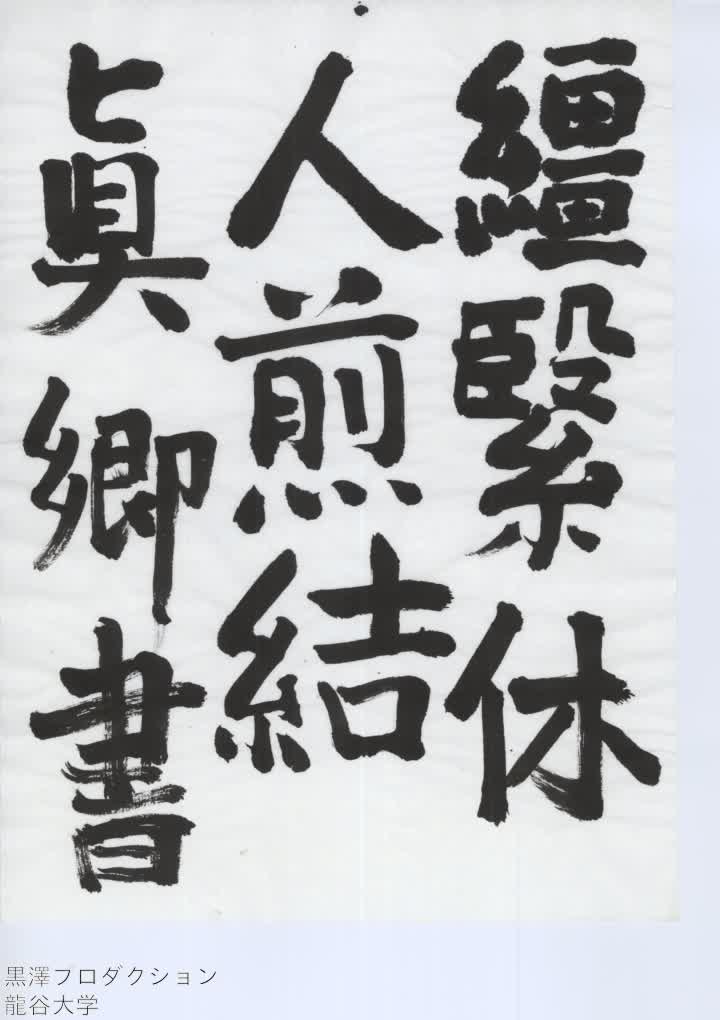 繮緊休
人煎結
眞卿書
黒澤プロダクション
龍谷大学